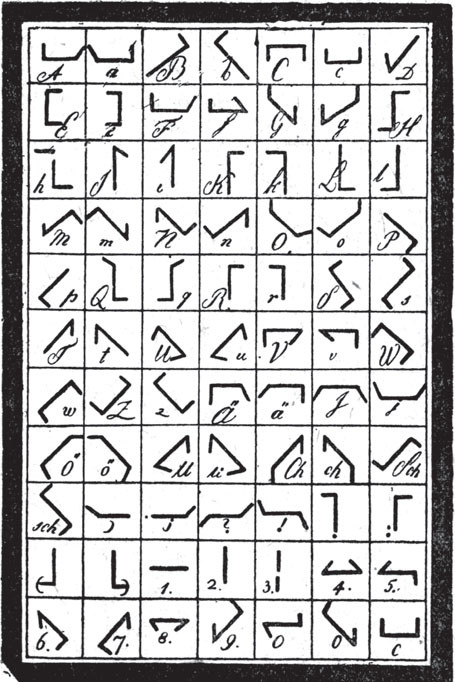 A a B b C c D
E F f G g H
h I i K k L l
M m N n O. o P
p Q q R. r S s
T t U u V v W
w Z z Ä ä J j
Ö ö U ü Ch ch Sch
sch ? !
( ) 1. 2. 3. 4. 5.
6. 7. 8. 9. 0 0 c